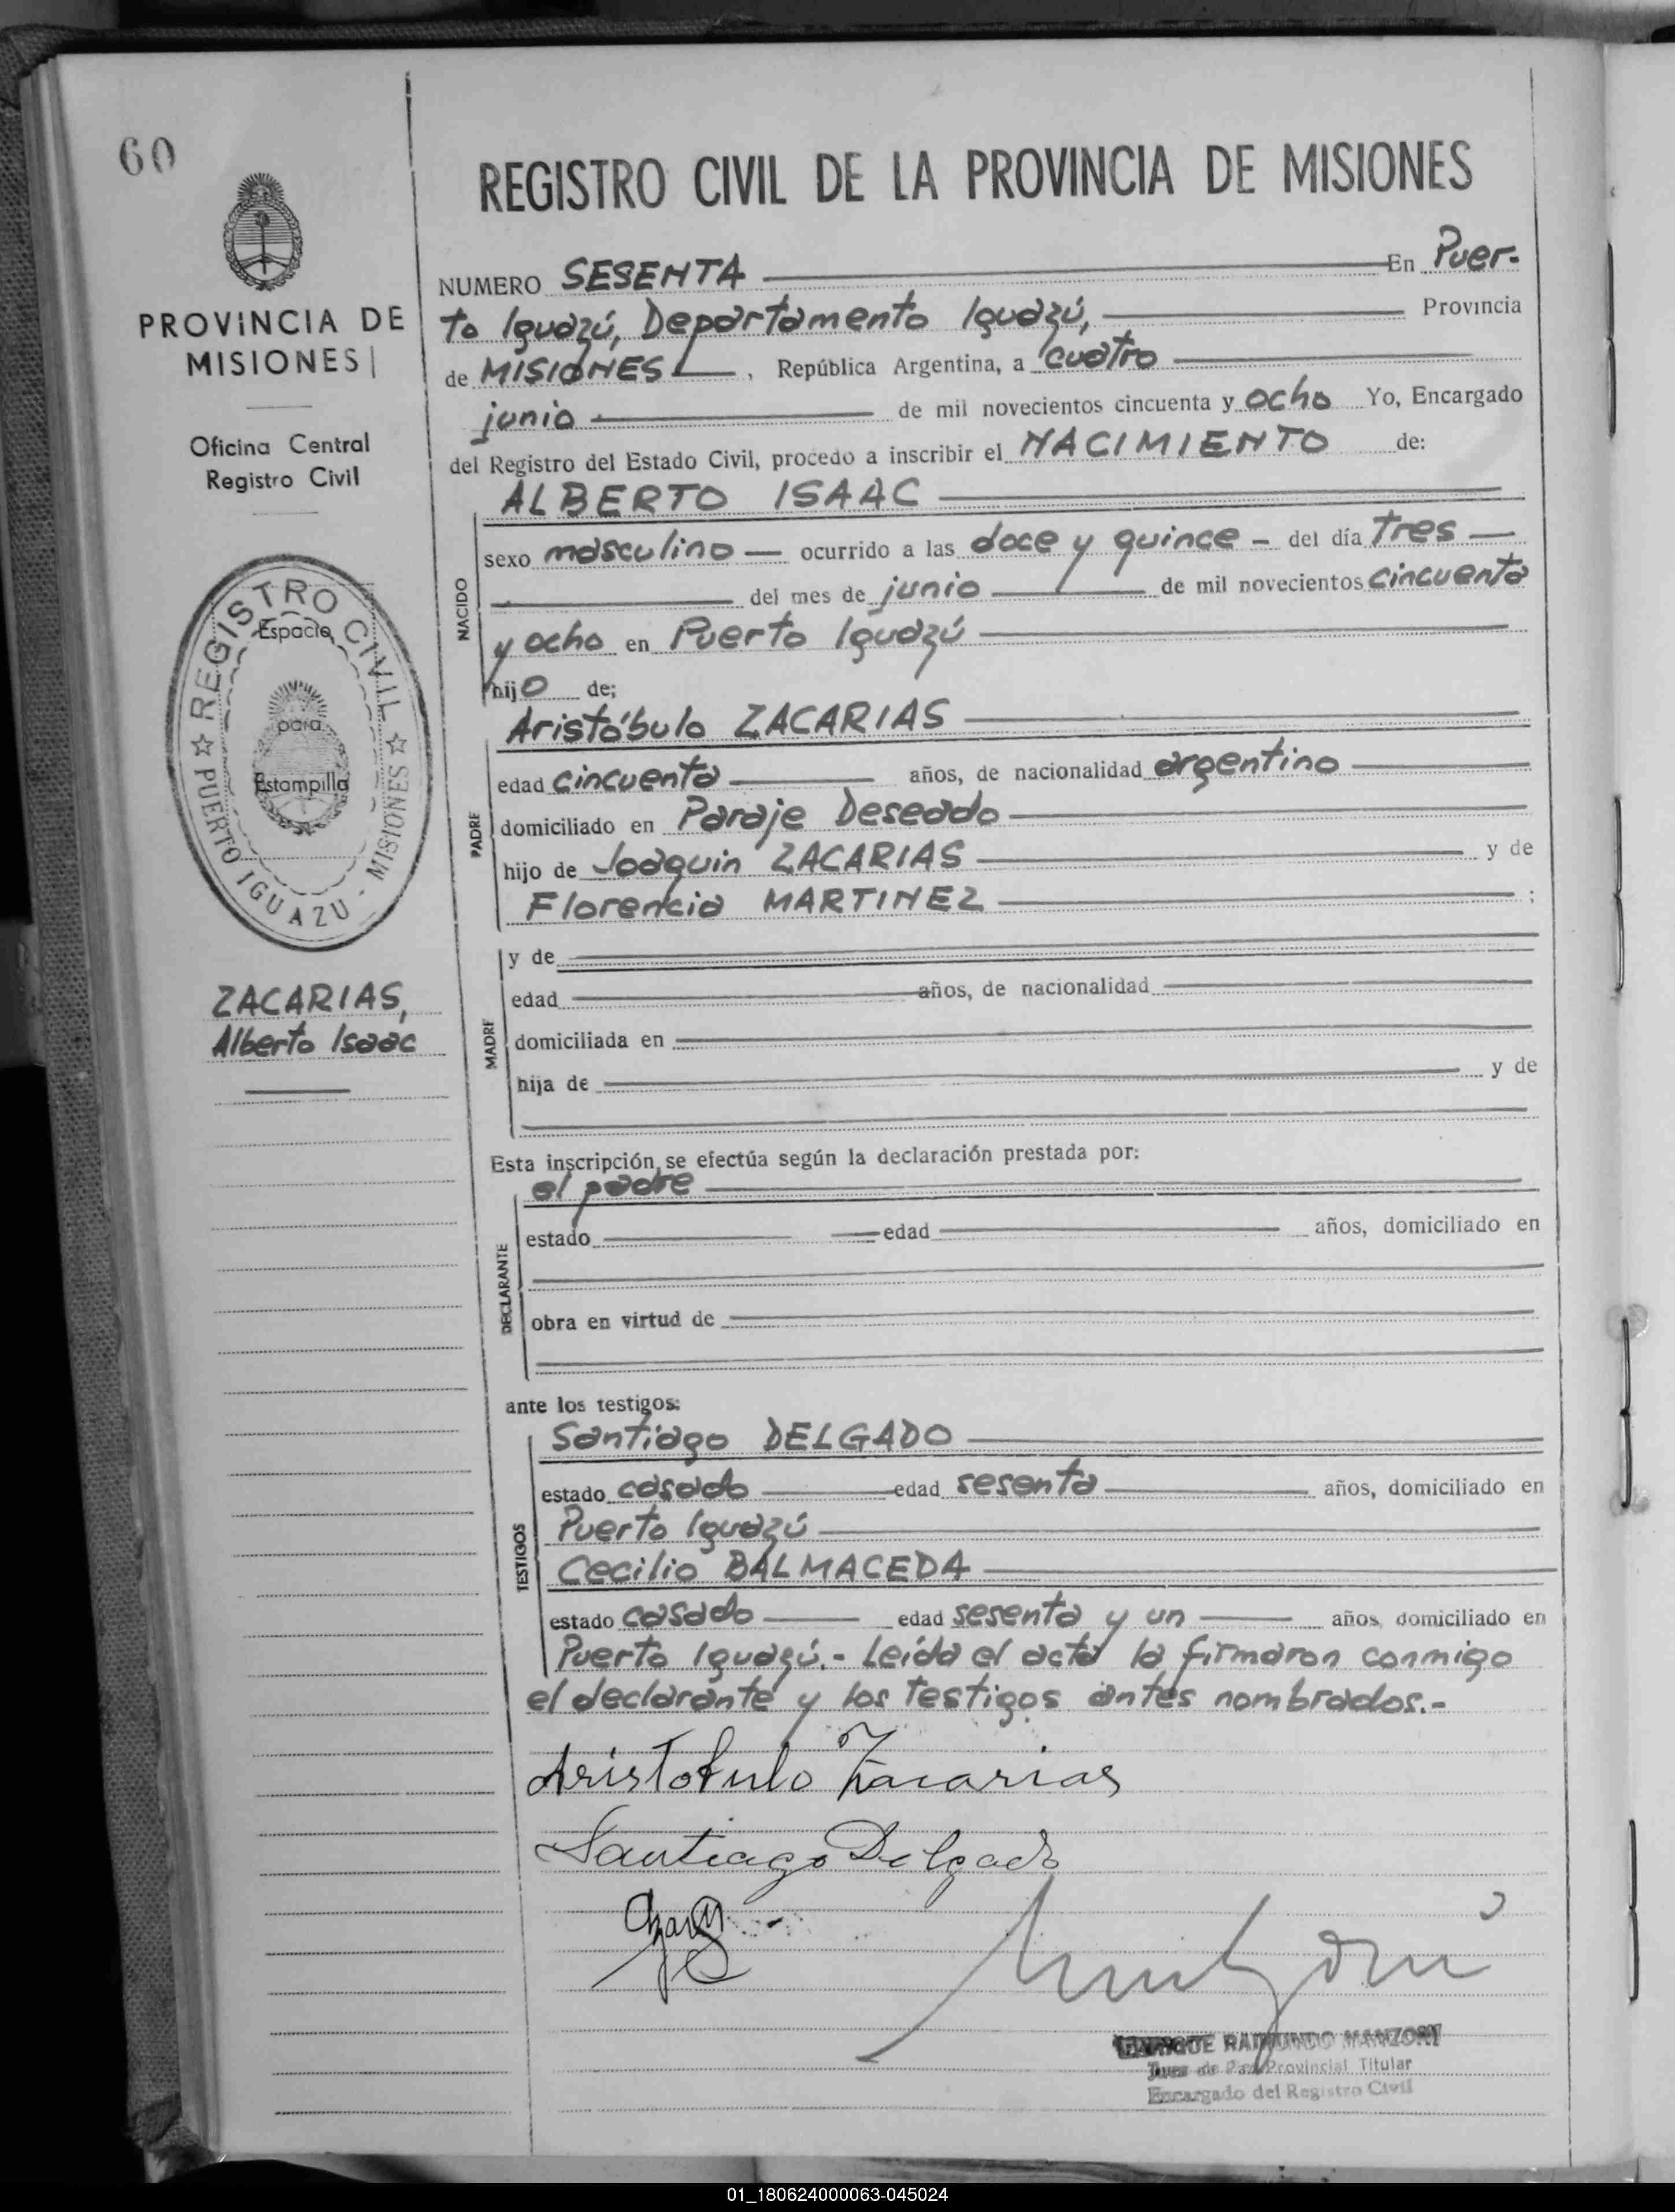 60
REGISTRO CIVIL DE LA PROVINCIA DE MISIONES
PROVINCIA DE
MISIONES
Oficina Central
Registro Civil
REGISTRO CIVIL
Espacio
para
Estampilla
PUERTO IGUAZU - MISIONES
ZACARIAS,
Alberto Isaac
NUMERO SESENTA En Puer-
to Iguazú, Departamento Iguazú, Provincia
de MISIONES, República Argentina, a cuatro
junio de mil novecientos cincuenta y ocho Yo, Encargado
del Registro del Estado Civil, procedo a inscribir el NACIMIENTO de:
ALBERTO ISAAC
NACIDO
sexo masculino ocurrido a las doce y quince - del día tres
del mes de junio de mil novecientos cincuenta
y ocho en Puerto Iguazú
hijo de;
Aristóbulo ZACARIAS
PADRE
edad cincuenta años, de nacionalidad argentino
domiciliado en Paraje Deseado
hijo de Joaquin ZACARIAS y de
Florencia MARTINEZ ;
MADRE
y de
edad años, de nacionalidad
domiciliada en
hija de y de
Esta inscripción se efectúa según la declaración prestada por:
el padre
DECLARANTE
estado edad años, domiciliado en
obra en virtud de
ante los testigos:
Santiago DELGADO
TESTIGOS
estado casado edad sesenta años, domiciliado en
Puerto Iguazú
Cecilio BALMACEDA
estado casado edad sesenta y un años, domiciliado en
Puerto Iguazú.- Leída el acta la firmaron conmigo
el declarante y los testigos antes nombrados.-
Aristobulo Zacarias
Santiago Delgado
ENRIQUE RAIMUNDO MANZONI
Juez de Paz Provincial Titular
Encargado del Registro Civil
01_180624000063-045024